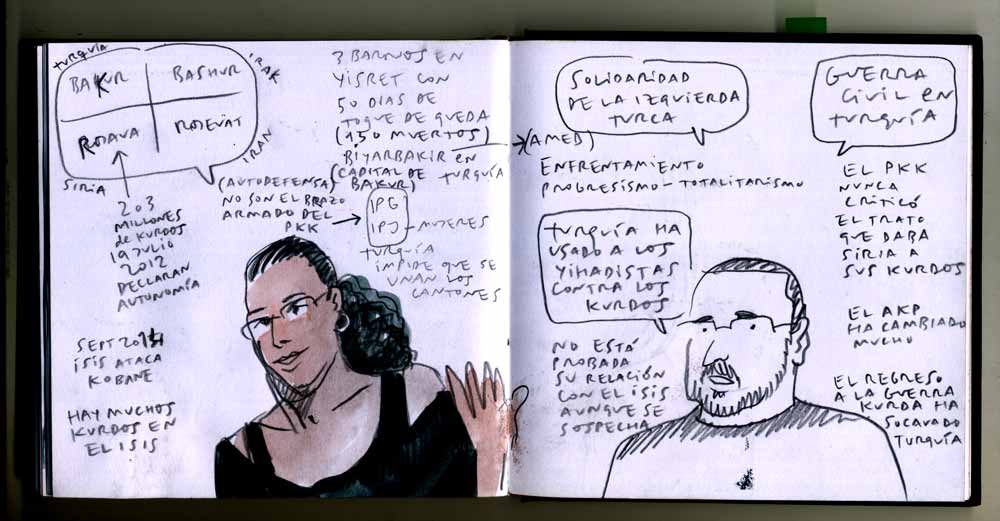 TURQUÍA
IRAK
BAKUR
BASHUR
ROJAVA
ROJEVAT
SIRIA
IRAN
2 o 3
MILLONES
de KURDOS
19 JULIO
2012
DECLARAN
AUTONOMÍA
SEPT 2014
ISIS ATACA
KOBANE
HAY MUCHOS
KURDOS EN
EL ISIS
3 BARRIOS EN
YISRET CON
50 DIAS DE
TOQUE DE QUEDA
(150 MUERTOS)
BIYARBAKIR en
(CAPITAL DE TURQUÍA
BAKUR)
(AUTODEFENSA)
NO SON EL BRAZO
ARMADO DEL
PKK
IPG
IPJ - MUJERES
TURQUÍA
IMPIDE QUE SE
UNAN LOS
CANTONES
SOLIDARIDAD
DE LA IZQUIERDA
TURCA
(AMED)
ENFRENTAMIENTO
PROGRESISMO - TOTALITARISMO
TURQUÍA HA
USADO A LOS
YIHADISTAS
CONTRA LOS
KURDOS
NO ESTÁ
PROBADA
SU RELACIÓN
CON EL ISIS
AUNQUE SE
SOSPECHA
?
GUERRA
CIVIL en
TURQUÍA
EL PKK
NUNCA
CRITICÓ
EL TRATO
QUE DABA
SIRIA A
SUS KURDOS
EL AKP
HA CAMBIADO
MUCHO
EL REGRESO
A LA GUERRA
KURDA HA
SOCAVADO
TURQUÍA